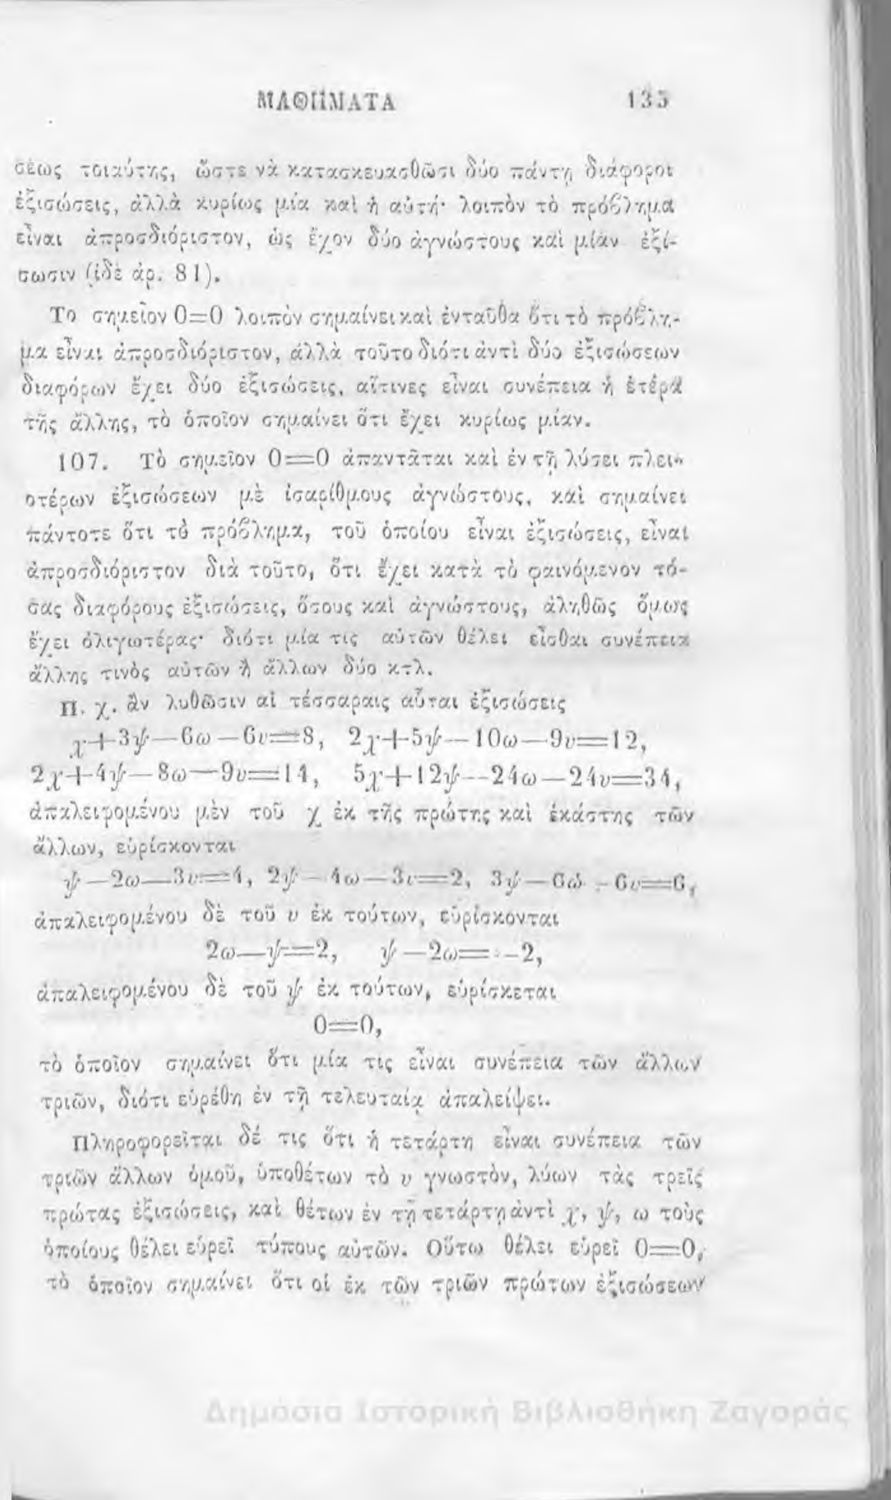 ΜΑΘΗΜΑΤΑ 135
σεως τοιαύτης, ὥστε νὰ κατασκευασθῶσι δύο πάντη διάφοροι
ἐξισώσεις, ἀλλὰ κυρίως μία καὶ ἡ αὐτή· λοιπὸν τὸ πρόβλημα
εἶναι ἀπροσδιόριστον, ὡς ἔχον δύο ἀγνώστους καὶ μίαν ἐξί-
σωσιν (ἰδὲ ἀρ. 81).
Το σημεῖον 0=0 λοιπὸν σημαίνει καὶ ἐνταῦθα ὅτι τὸ πρόβλη-
μα εἶναι ἀπροσδιόριστον, ἀλλὰ τοῦτο διότι ἀντὶ δύο ἐξισώσεων
διαφόρων ἔχει δύο ἐξισώσεις, αἵτινες εἶναι συνέπεια ἡ ἑτέρα
τῆς ἄλλης, τὸ ὁποῖον σημαίνει ὅτι ἔχει κυρίως μίαν.
107. Τὸ σημεῖον 0=0 ἀπαντᾶται καὶ ἐν τῇ λύσει πλει-
οτέρων ἐξισώσεων μὲ ἰσαρίθμους ἀγνώστους, καὶ σημαίνει
πάντοτε ὅτι τὸ πρόβλημα, τοῦ ὁποίου εἶναι ἐξισώσεις, εἶναι
ἀπροσδιόριστον διὰ τοῦτο, ὅτι ἔχει κατὰ τὸ φαινόμενον τό-
σας διαφόρους ἐξισώσεις, ὅσους καὶ ἀγνώστους, ἀληθῶς ὅμως
ἔχει ὀλιγωτέρας· διότι μία τις αὐτῶν θέλει εἶσθαι συνέπεια
ἄλλης τινὸς αὐτῶν ἢ ἄλλων δύο κτλ.
Π. χ. ἂν λυθῶσιν αἱ τέσσαραις αὗται ἐξισώσεις
χ+3ψ—6ω—6υ=8, 2χ+5ψ—10ω—9υ=12,
2χ+4ψ—8ω—9υ=11, 5χ+12ψ—24ω—24υ=34,
ἀπαλειφομένου μὲν τοῦ χ ἐκ τῆς πρώτης καὶ ἑκάστης τῶν
ἄλλων, εὑρίσκονται
ψ—2ω—3υ=4, 2ψ—4ω—3υ=2, 3ψ—6ω—6υ=6,
ἀπαλειφομένου δὲ τοῦ υ ἐκ τούτων, εὑρίσκονται
2ω—ψ=2, ψ—2ω=—2,
ἀπαλειφομένου δὲ τοῦ ψ ἐκ τούτων, εὑρίσκεται
0=0,
τὸ ὁποῖον σημαίνει ὅτι μία τις εἶναι συνέπεια τῶν ἄλλων
τριῶν, διότι εὑρέθη ἐν τῇ τελευταίᾳ ἀπαλείψει.
Πληροφορεῖται δέ τις ὅτι ἡ τετάρτη εἶναι συνέπεια τῶν
τριῶν ἄλλων ὁμοῦ, ὑποθέτων τὸ υ γνωστὸν, λύων τὰς τρεῖς
πρώτας ἐξισώσεις, καὶ θέτων ἐν τῇ τετάρτῃ ἀντὶ χ, ψ, ω τοὺς
ὁποίους θέλει εὑρεῖ τύπους αὐτῶν. Οὕτω θέλει εὑρεῖ 0=0,
τὸ ὁποῖον σημαίνει ὅτι οἱ ἐκ τῶν τριῶν πρώτων ἐξισώσεων
Δημόσια Ιστορική Βιβλιοθήκη Ζαγοράς